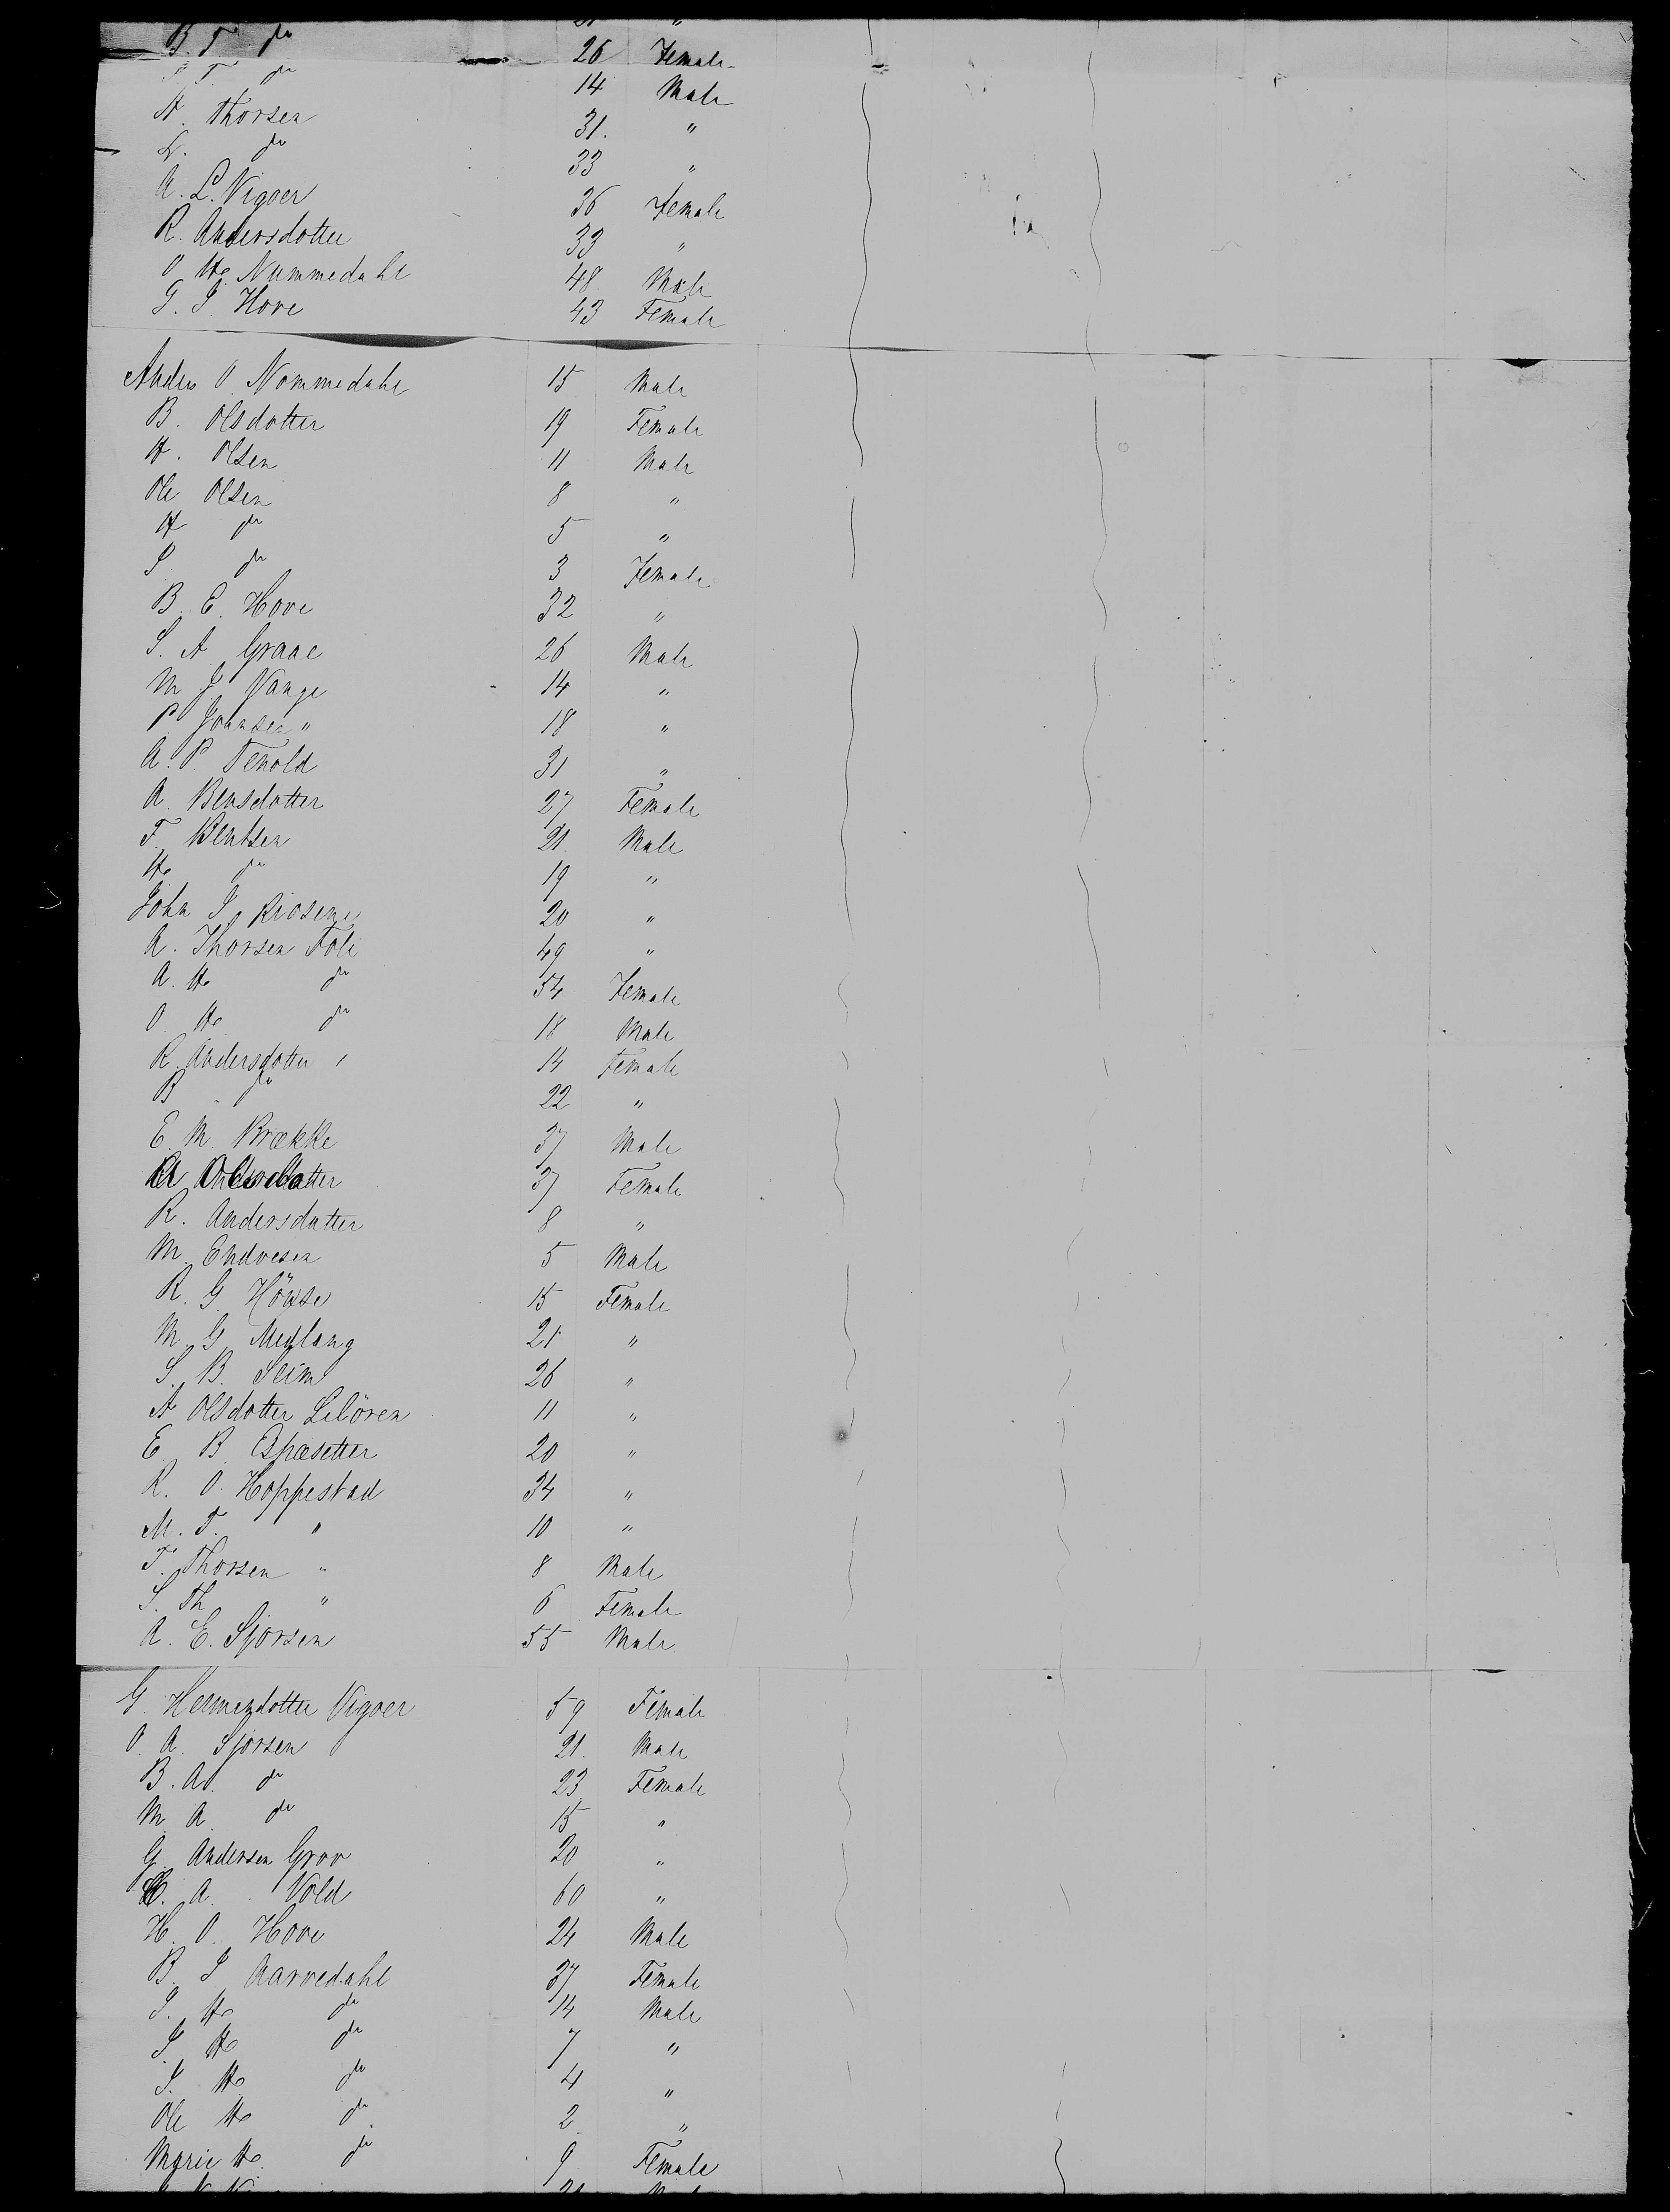 B. T. do 26 Female
T. do 14 Male
H. Thorsen 31. "
L. do 33 "
A. L. Vigoer 36 Female
R. Andersdotter 33 "
O H. Nummedahl 48 Male
G. I. Hove 43 Female
Anders O. Nommedahl 15 Male
B. Olsdotter 19 Female
H. Olsen 11 Male
Ole Olsen 8 "
H do 5 "
S. do 3 Female
B. E. Hove 32 "
S. A Graae 26 Male
M J. Vange 14 "
P. Johnsen " 18 "
A. P. Tenold 31 "
A. Bensdotter 27 Female
T. Bentsen 21 Male
H. do 19 "
John I. 20 "
A. Thorsen Foli 49 "
A. H. do 54 Female
O. H. do 18 Male
R. Andersdotter " 14 Female
B do 22 "
E. M. Brække 37 Male
37 Female
R. Andersdatter 8 "
M. Endresen 5 Male
R. G. 15 Female
M. G. Medlang 21 "
S. B. Seim 26 "
A Olsdotter Lilören 11 "
E. B. Espesetter 20 "
R. O. Hoppestad 34 "
M. T. " 10 "
T. Thorsen " 8 Male
S. Th " 6 Female
A. E. Sjorsen 55 Male
G. Hermendotter Vigoer 59 Female
O. A. Sjorsen 21. Male
B. A. do 23 Female
M. A. do 15 "
G. Andersen Grov 20 "
A. Vold 60 "
H. O. Hove 24 Male
B. I Aarvedahl 37 Female
S. H. do 14 Male
S. H. do 7 "
I. H. do 4 "
Ole H. do 2 "
Marie H. do 9 Female